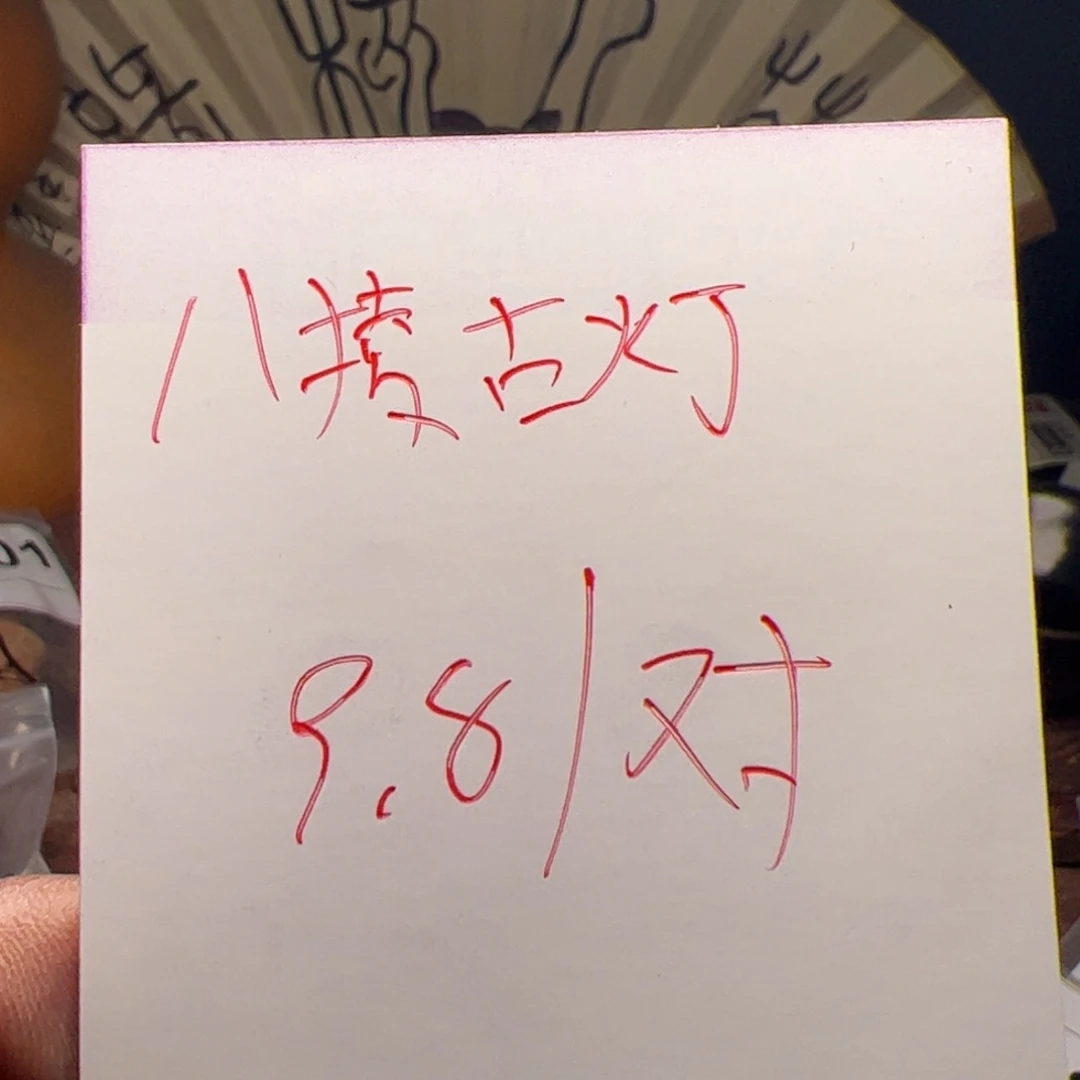 八棱古灯
9.8/对
01